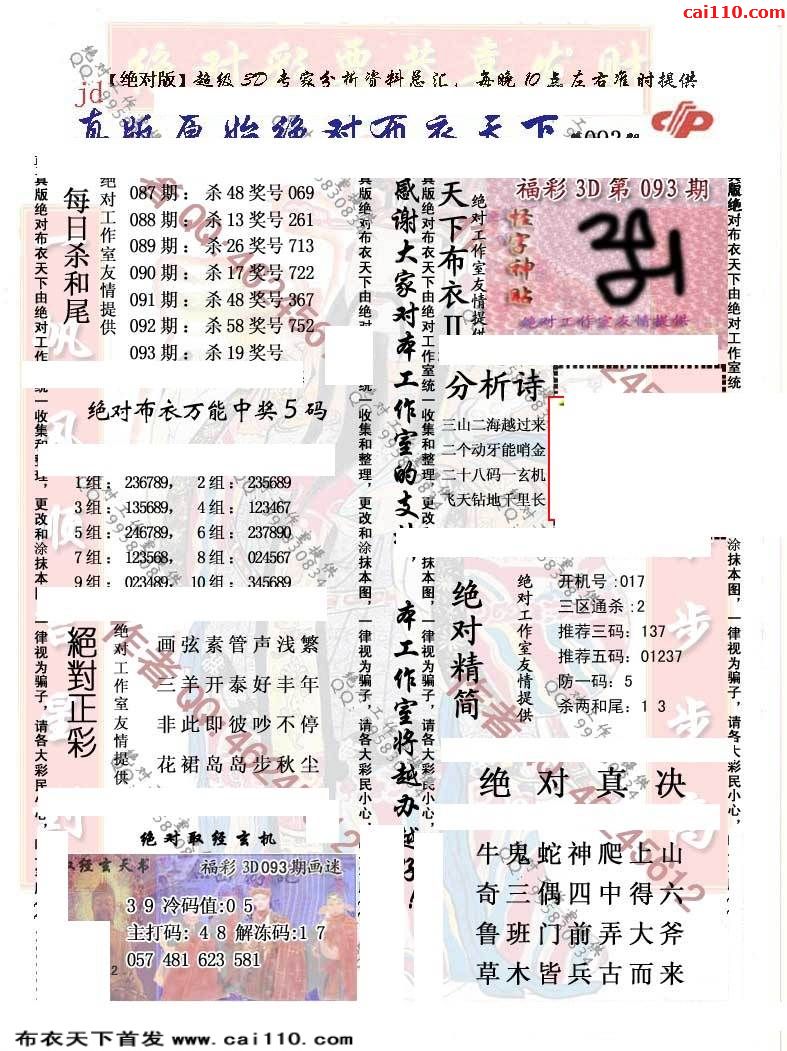 cai110.com
【绝对版】超级3D专家分析资料总汇，每晚10点左右准时提供
jd
真版原始绝对布衣天下
每日杀和尾
绝对工作室友情提供
087期：杀48奖号069
088期：杀13奖号261
089期：杀26奖号713
090期：杀17奖号722
091期：杀48奖号367
092期：杀58奖号752
093期：杀19奖号
绝对布衣万能中奖5码
1组：236789，2组：235689
3组：135689，4组：123467
5组：246789，6组：237890
7组：123568，8组：024567
9组：023489，10组：345689
絕對正彩
绝对工作室友情提供
画弦素管声浅繁
三羊开泰好丰年
非此即彼吵不停
花裙岛岛步秋尘
绝对取经玄机
取经玄天书
福彩3D093期画迷
39冷码值:05
主打码：48解冻码:17
057 481 623 581
感谢大家对本工作室的支
本工作室将越办越好！
天下布衣II
绝对工作室友情提供
福彩3D第093期
怪字神贴
绝对工作室友情提供
分析诗
三山二海越过来
二个动牙能哨金
二十八码一玄机
飞天钻地千里长
绝对精简
绝对工作室友情提供
开机号:017
三区通杀:2
推荐三码：137
推荐五码：01237
防一码：5
杀两和尾：1 3
绝对真决
牛鬼蛇神爬上山
奇三偶四中得六
鲁班门前弄大斧
草木皆兵古而来
布衣天下首发 www.cai110.com